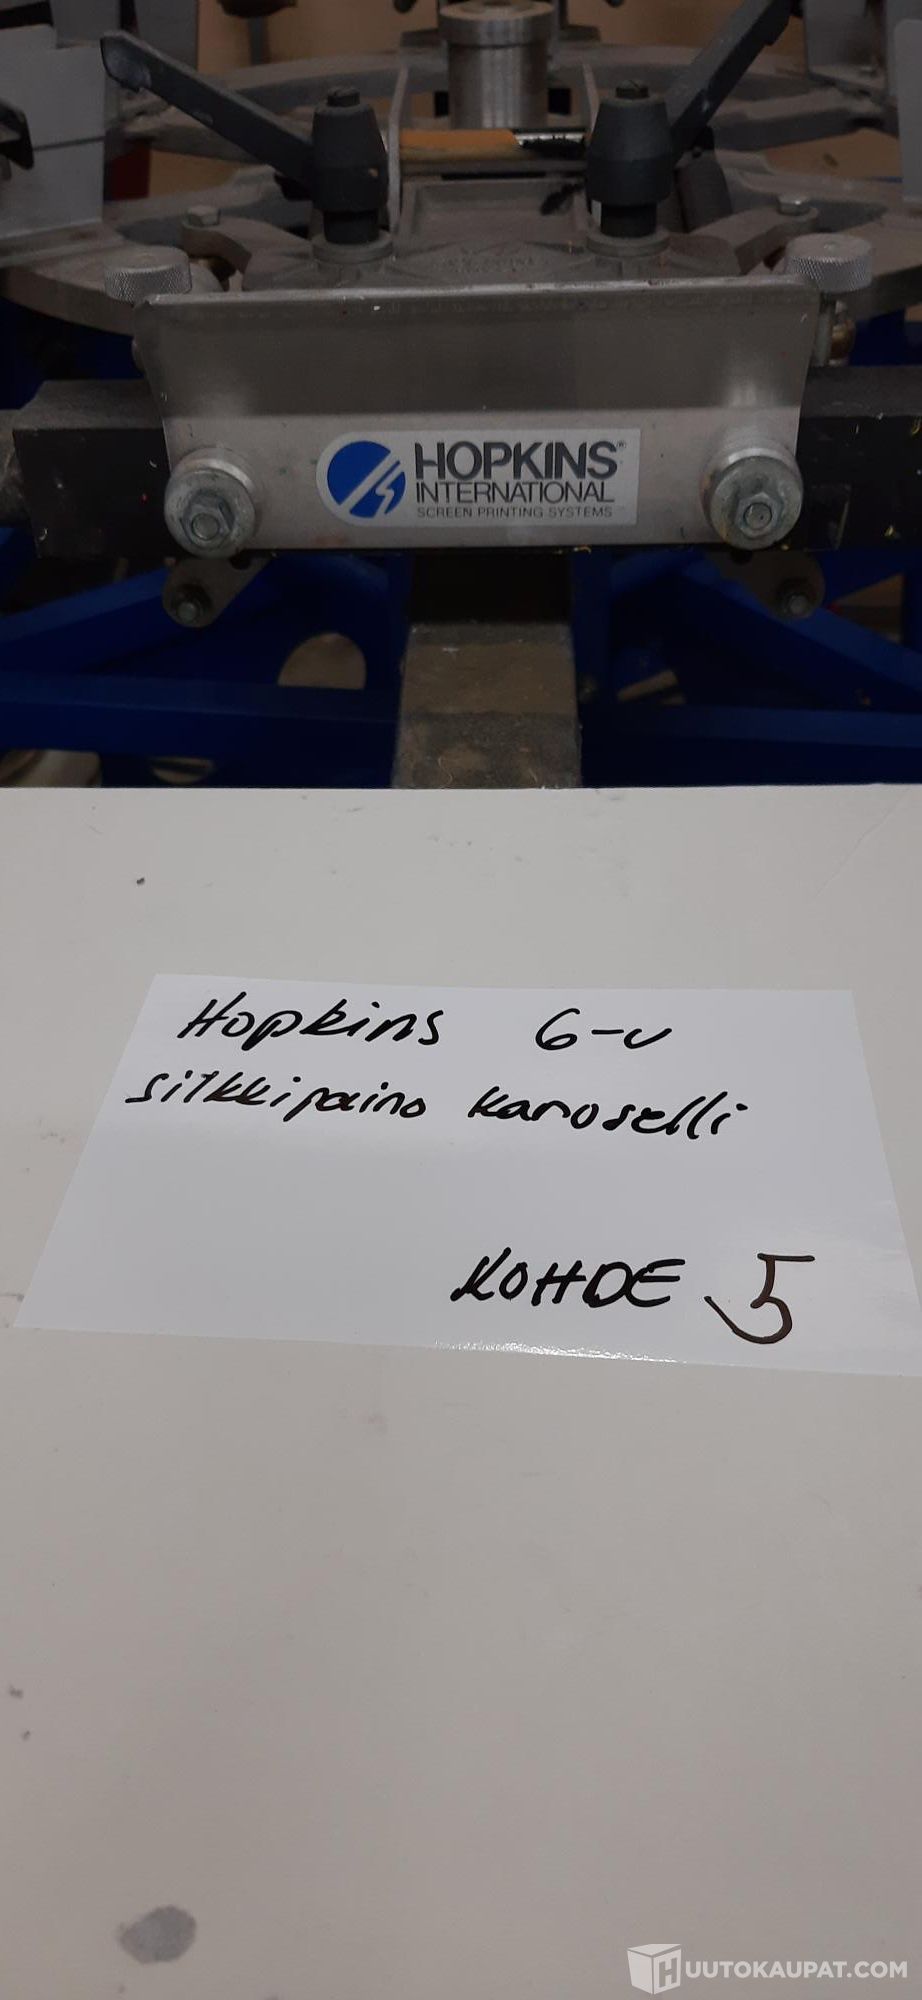 HOPKINS®
INTERNATIONAL
SCREEN PRINTING SYSTEMS
Hopkins 6-v
silkkipaino karoselli
KOHDE 5
HUUTOKAUPAT.COM